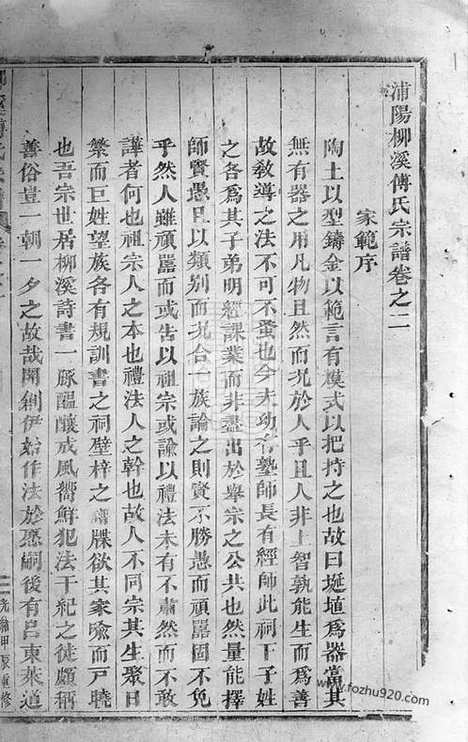 浦陽柳溪傅氏宗譜卷之二
家範序
陶土以型鑄金以範言有模式以把持之也故曰埏埴爲器當其
無有器之用凡物且然而况於人乎且人非上智孰能生而爲善
故敎導之法不可不蚤也今夫幼有塾師長有經師此祠丁子姓
之各爲其子弟明經課業而非盡出於舉宗之公共也然量能擇
師賢愚且以類别而况合一族論之則賢不勝愚而頑嚚固不免
乎然人雖頑嚚而或告以祖宗或諭以禮法未有不肅然而不敢
譁者何也祖宗人之本也禮法人之幹也故人不同宗其生聚日
繁而巨姓望族各有規訓書之祠壁梓之譜牒欲其家喻而戸曉
也吾宗世居柳溪詩書一脉醞釀成風嚮鮮犯法干紀之徒頗稱
善俗豈一朝一夕之故哉開創伊始作法於
嗣後有呂東萊道
光緒甲辰重修
www.fozhu920.com